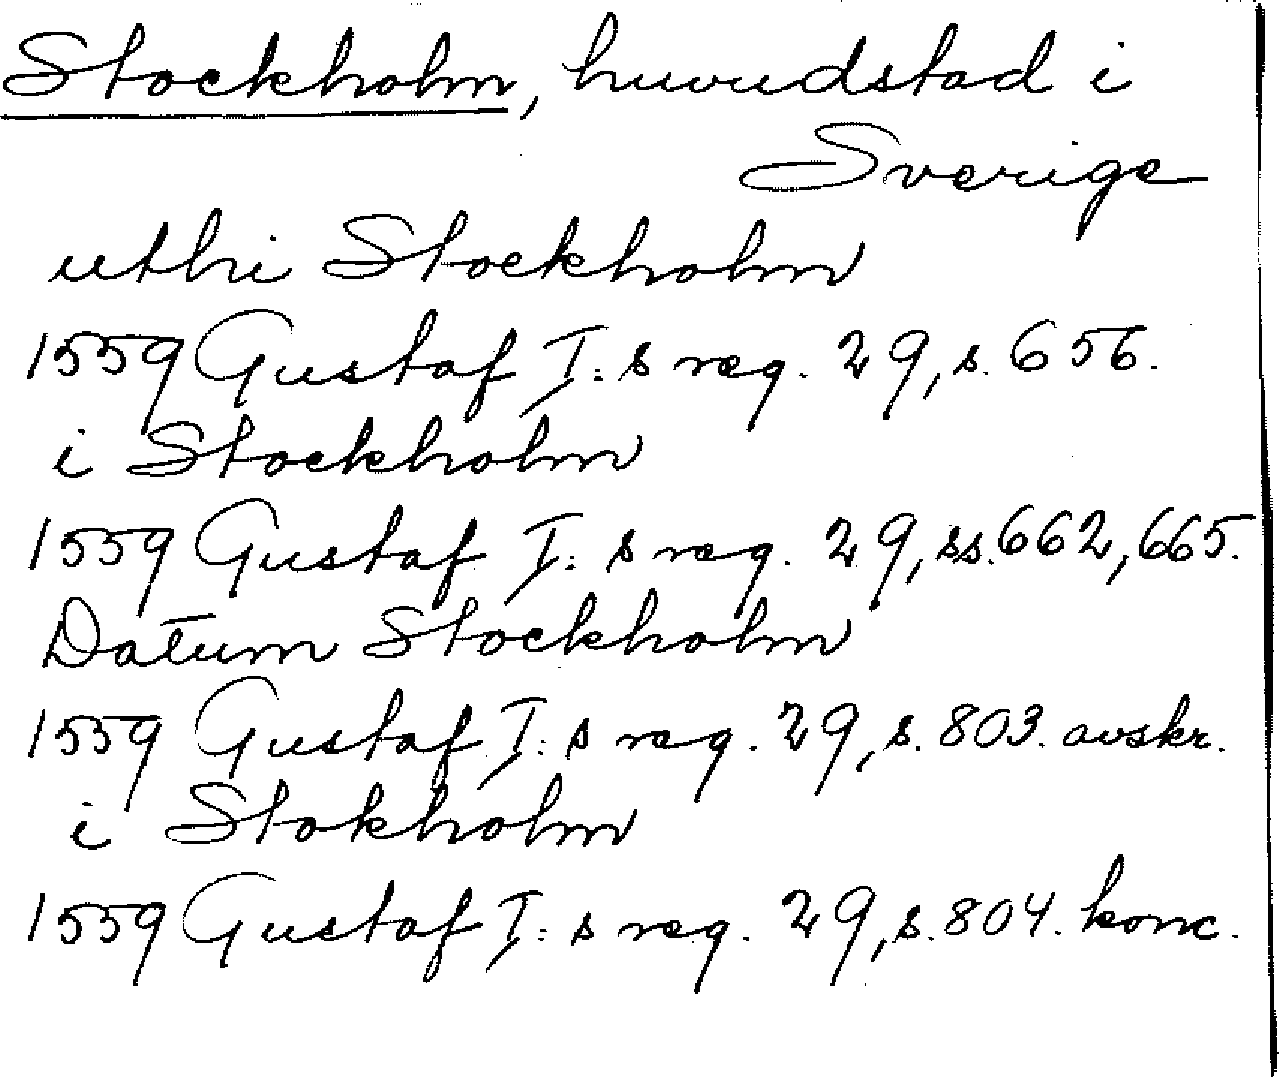 Stockholm, huvudstad i
Sverige
uthi Stockholm
1559 Gustaf I: s reg. 29, s. 656.
i Stockholm
1559 Gustaf I: s reg. 29, ss. 662, 665.
Datum Stockholm
1559 Gustaf I: s reg. 29, s. 803. avskr.
i Stokholm
1559 Gustaf I: s reg. 29, s. 804. konc.